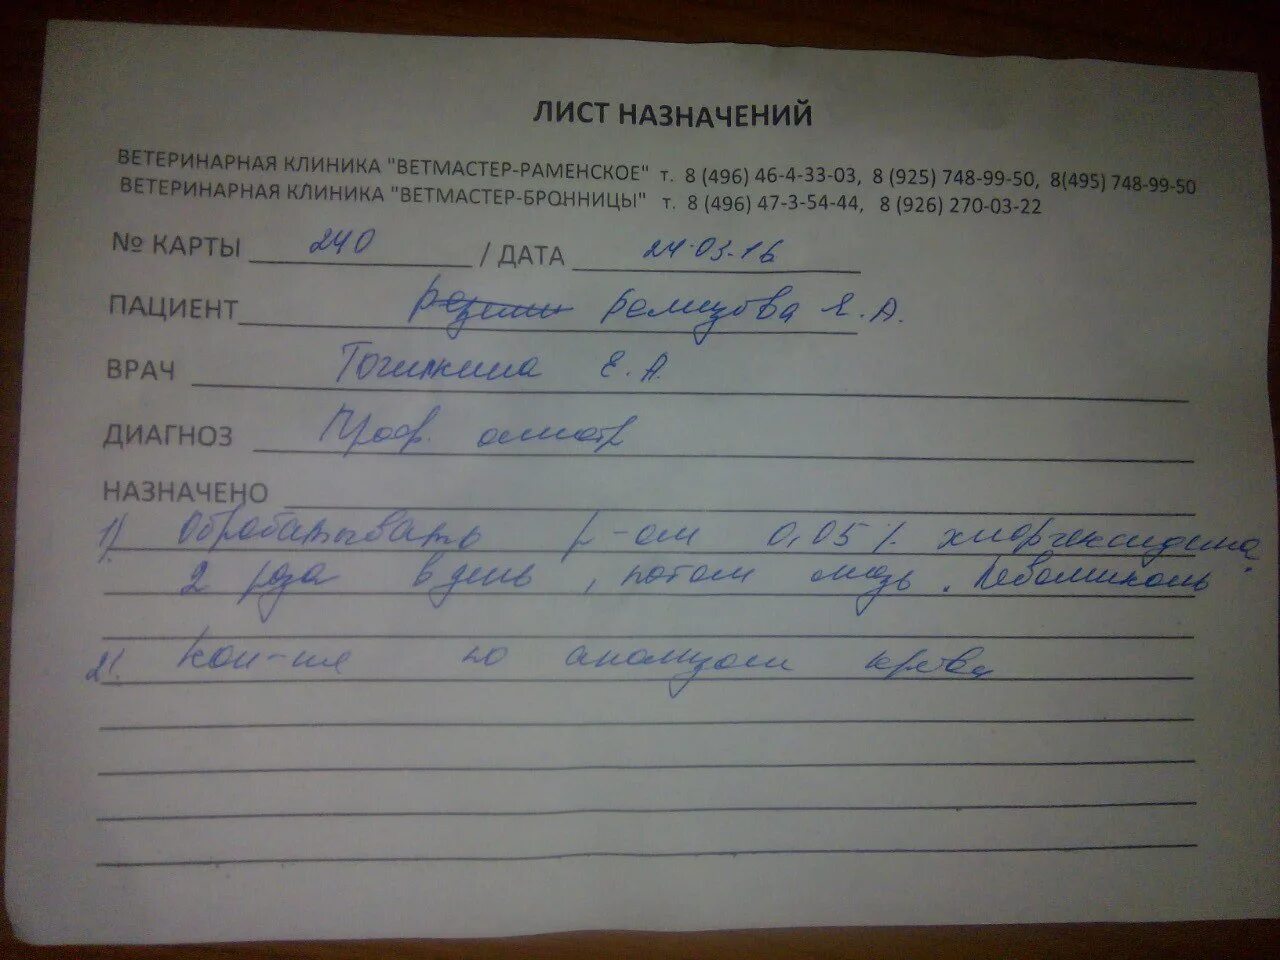 ЛИСТ НАЗНАЧЕНИЙ
ВЕТЕРИНАРНАЯ КЛИНИКА "ВЕТМАСТЕР-РАМЕНСКОЕ" т. 8 (496) 46-4-33-03, 8 (925) 748-99-50, 8(495) 748-99-50
ВЕТЕРИНАРНАЯ КЛИНИКА "ВЕТМАСТЕР-БРОННИЦЫ" т. 8 (496) 47-3-54-44, 8 (926) 270-03-22
№ КАРТЫ 240 / ДАТА 24.03.16
ПАЦИЕНТ Ремизова Я.А.
ВРАЧ Е.А.
ДИАГНОЗ Проф. осмотр
НАЗНАЧЕНО
1). Обрабатывать р-ом 0,05% хлоргексидина
2 раза в день, потом мазь. Левомиколь
2). Кон-ия по анализам крови